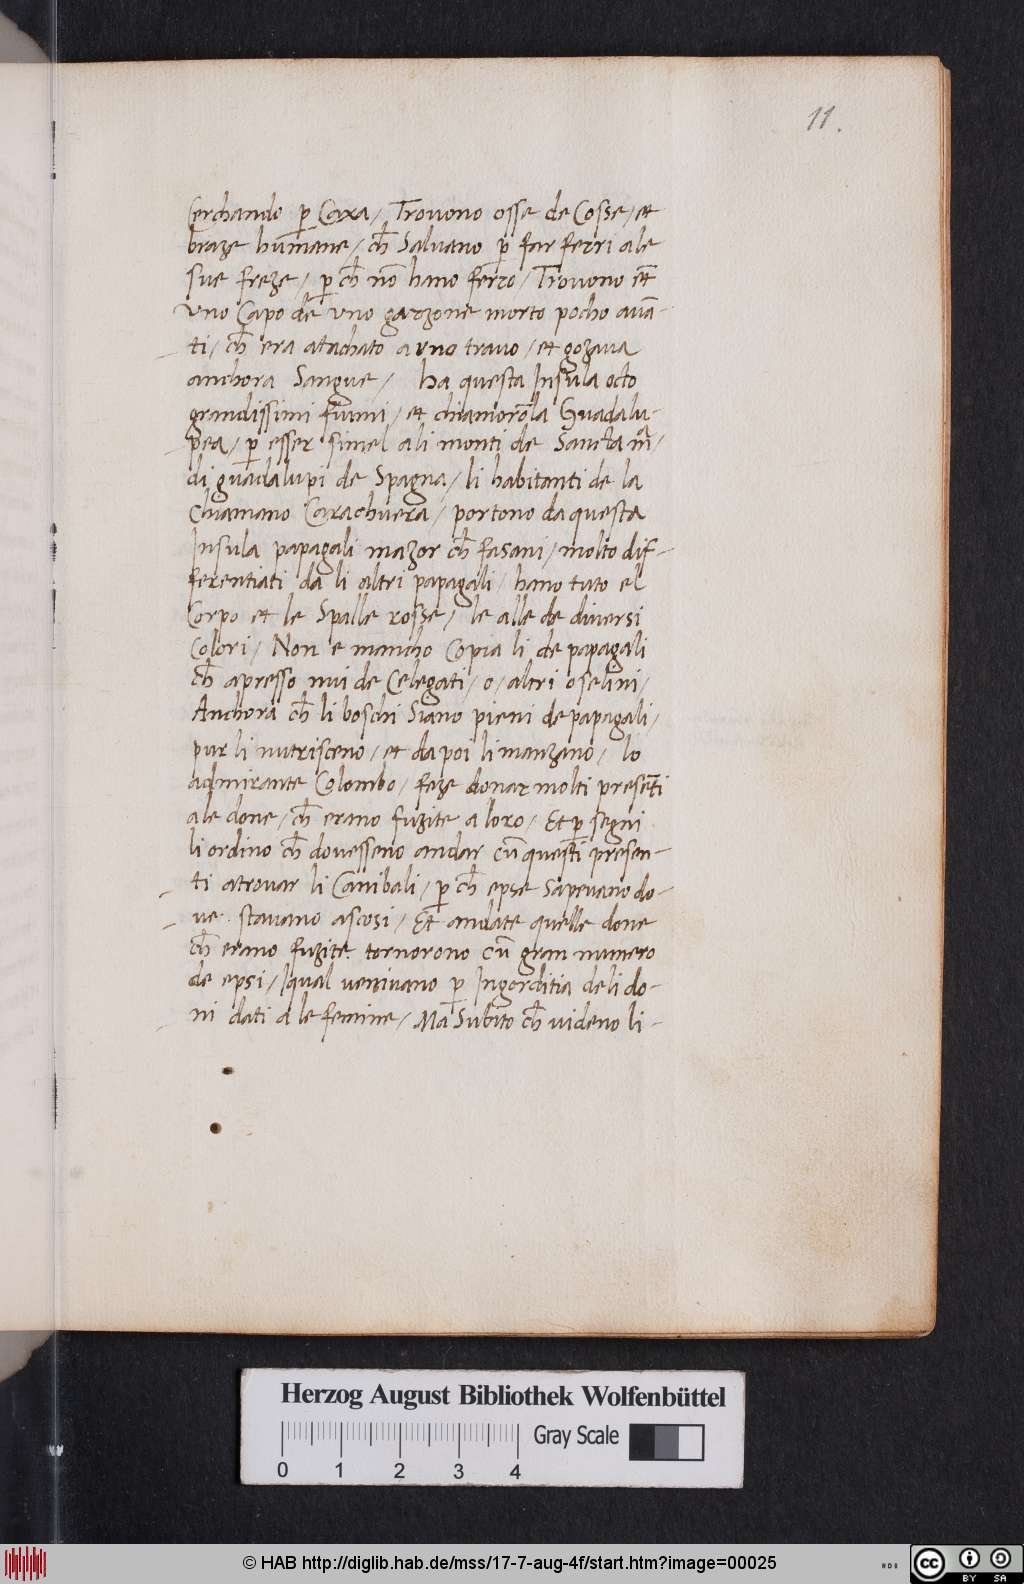 11.
Cerchando p̱ Caxa / Trouono osse de Cosse / et
braze humane / ch̄ Saluano p̱ far ferri a le
sue freze / p̱ ch̄ nō hano ferro / Trouono et̄
vno Capo de vno garzone morto pocho auā-
ti / ch̄ era atachato a vno trauo / et gozaua
anchora Sangue / ha questa Insula octo
grandissimi fiumi / et chiamorōla Guadalu-
pea / p̱ esser simel a li monti de Sancta mᵃ /
di guadalupi de Spagna / li habitanti de la
Chiamano Carachuera / portono da questa
Insula papagali mazor ch̄ fasani / molto dif-
ferentiati da li altri papagali / hano tuto el
Corpo et le Spalle rosse / le alle de diuersi
Colori / Non e mancho Copia li de papagali
ch̄ apresso nui de Celegati / o / altri oselini /
Anchora ch̄ li boschi Siano pieni de papagali /
pur li nutrisceno / et da poi li manzano / lo
admirante Colombo / feze donar molti presēti
a le done / ch̄ erano fuzite a loro / Et p̱ segni
li ordino ch̄ douesseno andar cū questi presen-
ti atrouar li Canibali / p̱ ch̄ epse Sapeuano do-
ue stauano ascosi / Et andate quelle done
ch̄ erano fuzite tornorono cū gran numero
de epsi / lqual veniuano p̱ Ingorditia de li do-
ni dati a le femine / Ma Subito ch̄ uideno li-
Herzog August Bibliothek Wolfenbüttel
Gray Scale
0 1 2 3 4
© HAB http://diglib.hab.de/mss/17-7-aug-4f/start.htm?image=00025
cc BY SA